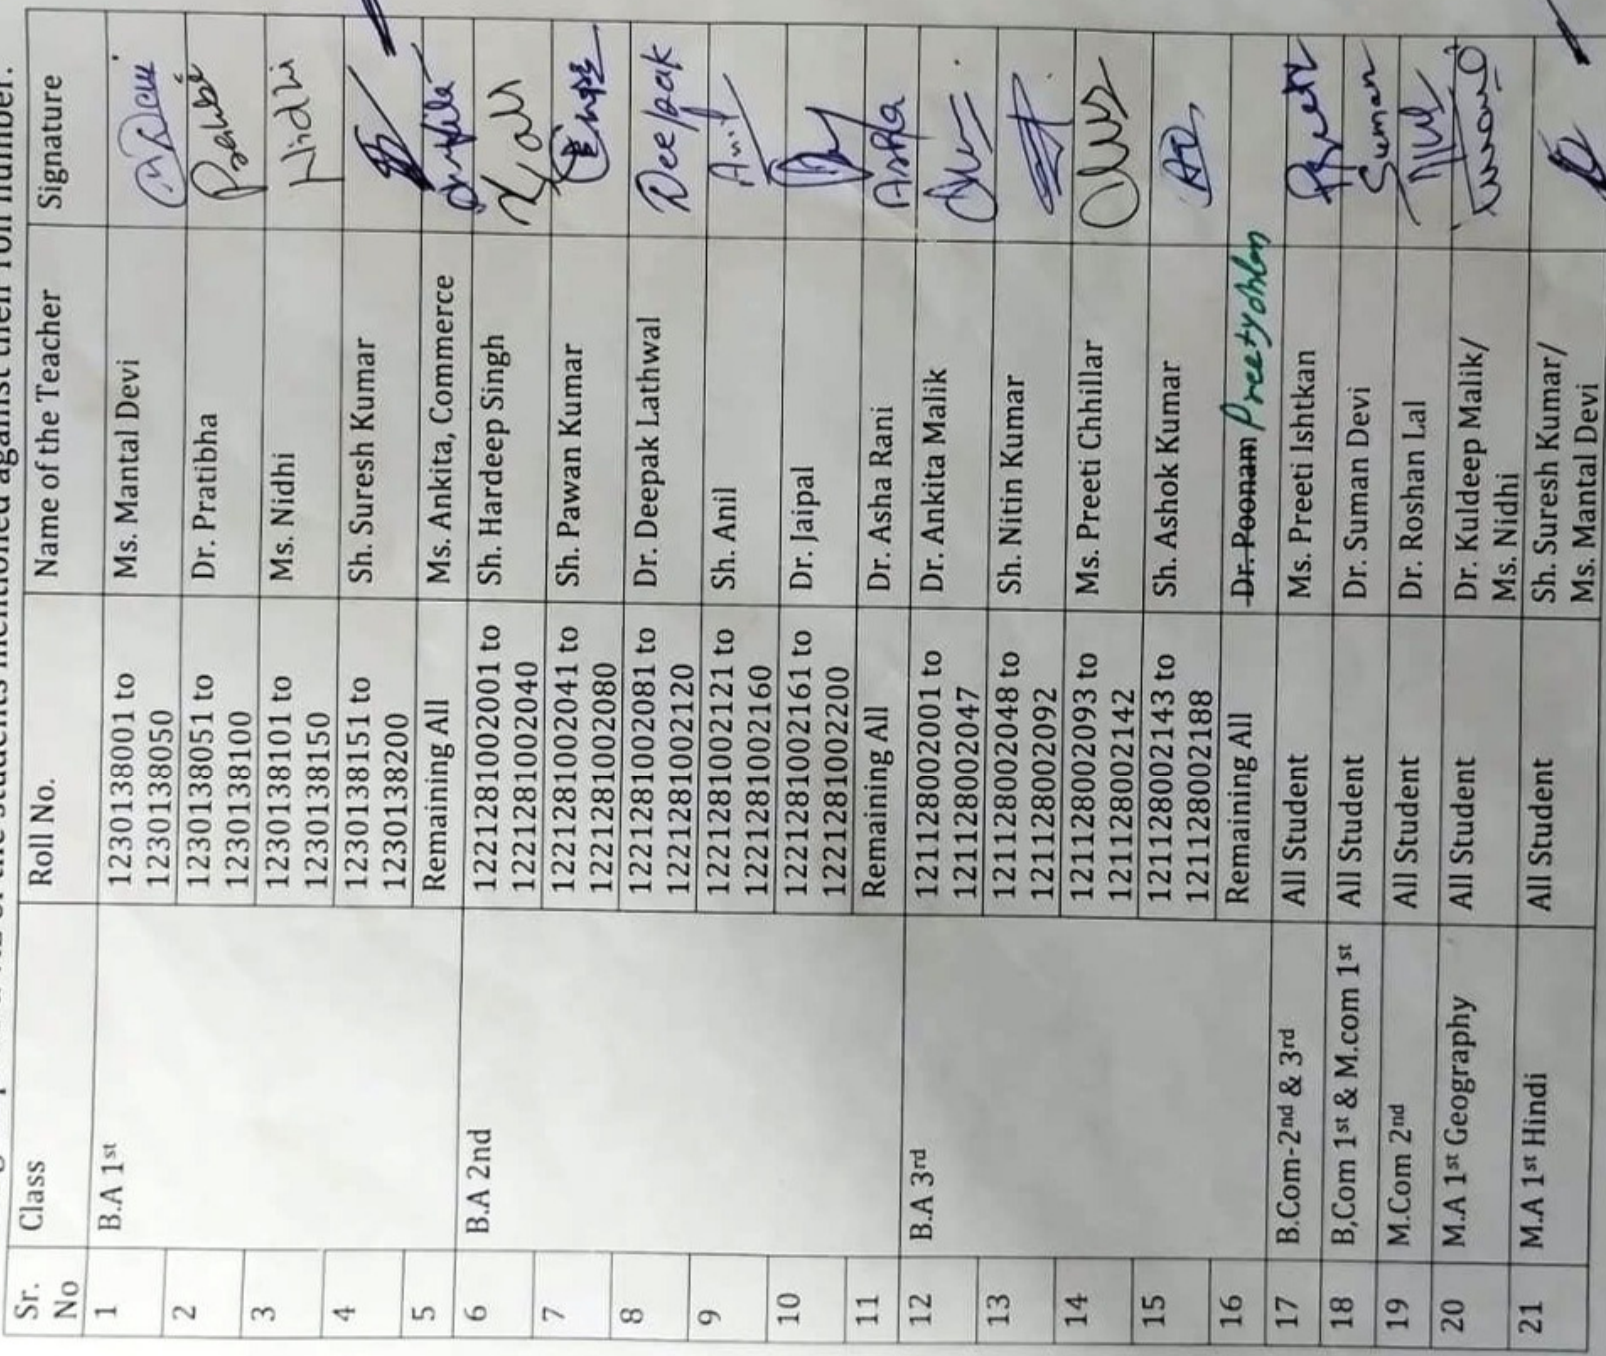 the students mentioned against their roll number.
Sr. No Class Roll No. Name of the Teacher Signature
1 B.A 1st 1230138001 to 1230138050 Ms. Mantal Devi
2 1230138051 to 1230138100 Dr. Pratibha
3 1230138101 to 1230138150 Ms. Nidhi Nidhi
4 1230138151 to 1230138200 Sh. Suresh Kumar
5 Remaining All Ms. Ankita, Commerce
6 B.A 2nd 1221281002001 to 1221281002040 Sh. Hardeep Singh
7 1221281002041 to 1221281002080 Sh. Pawan Kumar
8 1221281002081 to 1221281002120 Dr. Deepak Lathwal Deepak
9 1221281002121 to 1221281002160 Sh. Anil Anil
10 1221281002161 to 1221281002200 Dr. Jaipal
11 Remaining All Dr. Asha Rani Asha
12 B.A 3rd 1211280002001 to 1211280002047 Dr. Ankita Malik
13 1211280002048 to 1211280002092 Sh. Nitin Kumar
14 1211280002093 to 1211280002142 Ms. Preeti Chhillar
15 1211280002143 to 1211280002188 Sh. Ashok Kumar
16 Remaining All Dr. Poonam Preety
17 B.Com-2nd & 3rd All Student Ms. Preeti Ishtkan Preeti
18 B,Com 1st & M.com 1st All Student Dr. Suman Devi Suman
19 M.Com 2nd All Student Dr. Roshan Lal
20 M.A 1st Geography All Student Dr. Kuldeep Malik/ Ms. Nidhi
21 M.A 1st Hindi All Student Sh. Suresh Kumar/ Ms. Mantal Devi